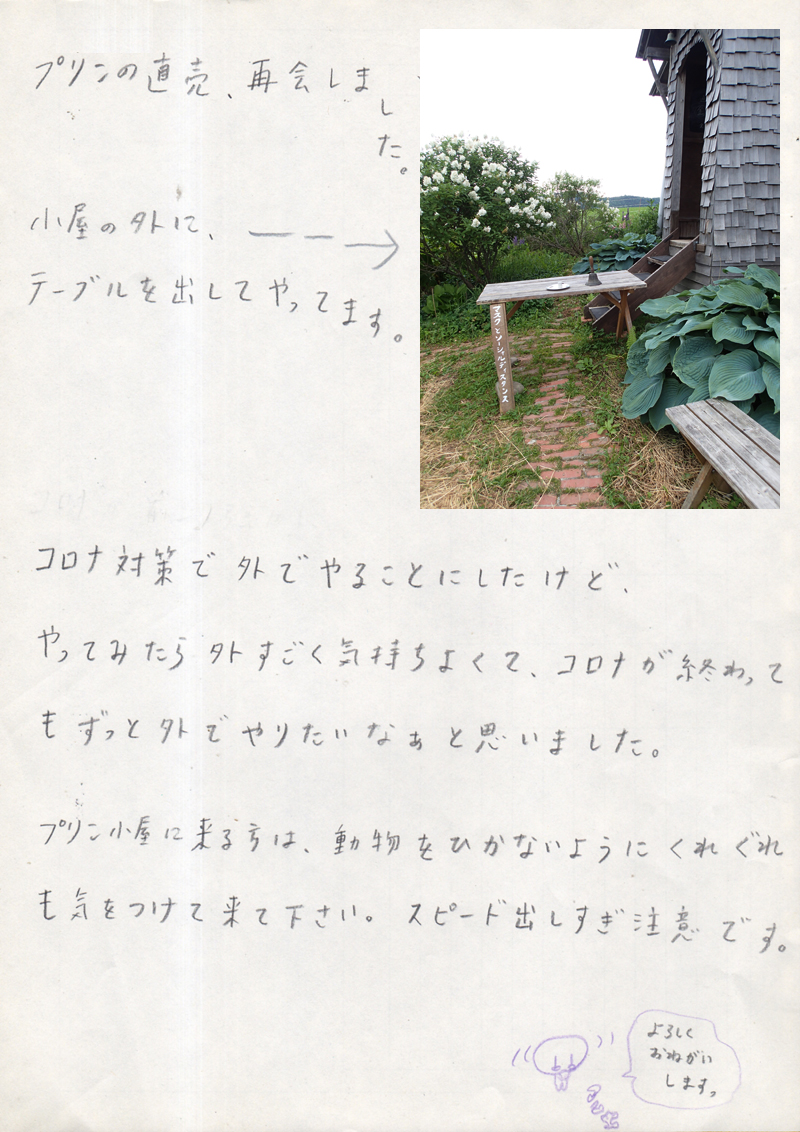 プリンの直売、再会しました。
小屋の外に、
テーブルを出してやってます。
マスクとソーシャルディスタンス
コロナ対策で外でやることにしたけど、
やってみたら外すごく気持ちよくて、コロナが終わって
もずっと外でやりたいなぁと思いました。
プリン小屋に来る方は、動物をひかないようにくれぐれ
も気をつけて来て下さい。スピード出しすぎ注意です。
よろしく
おねがい
します。